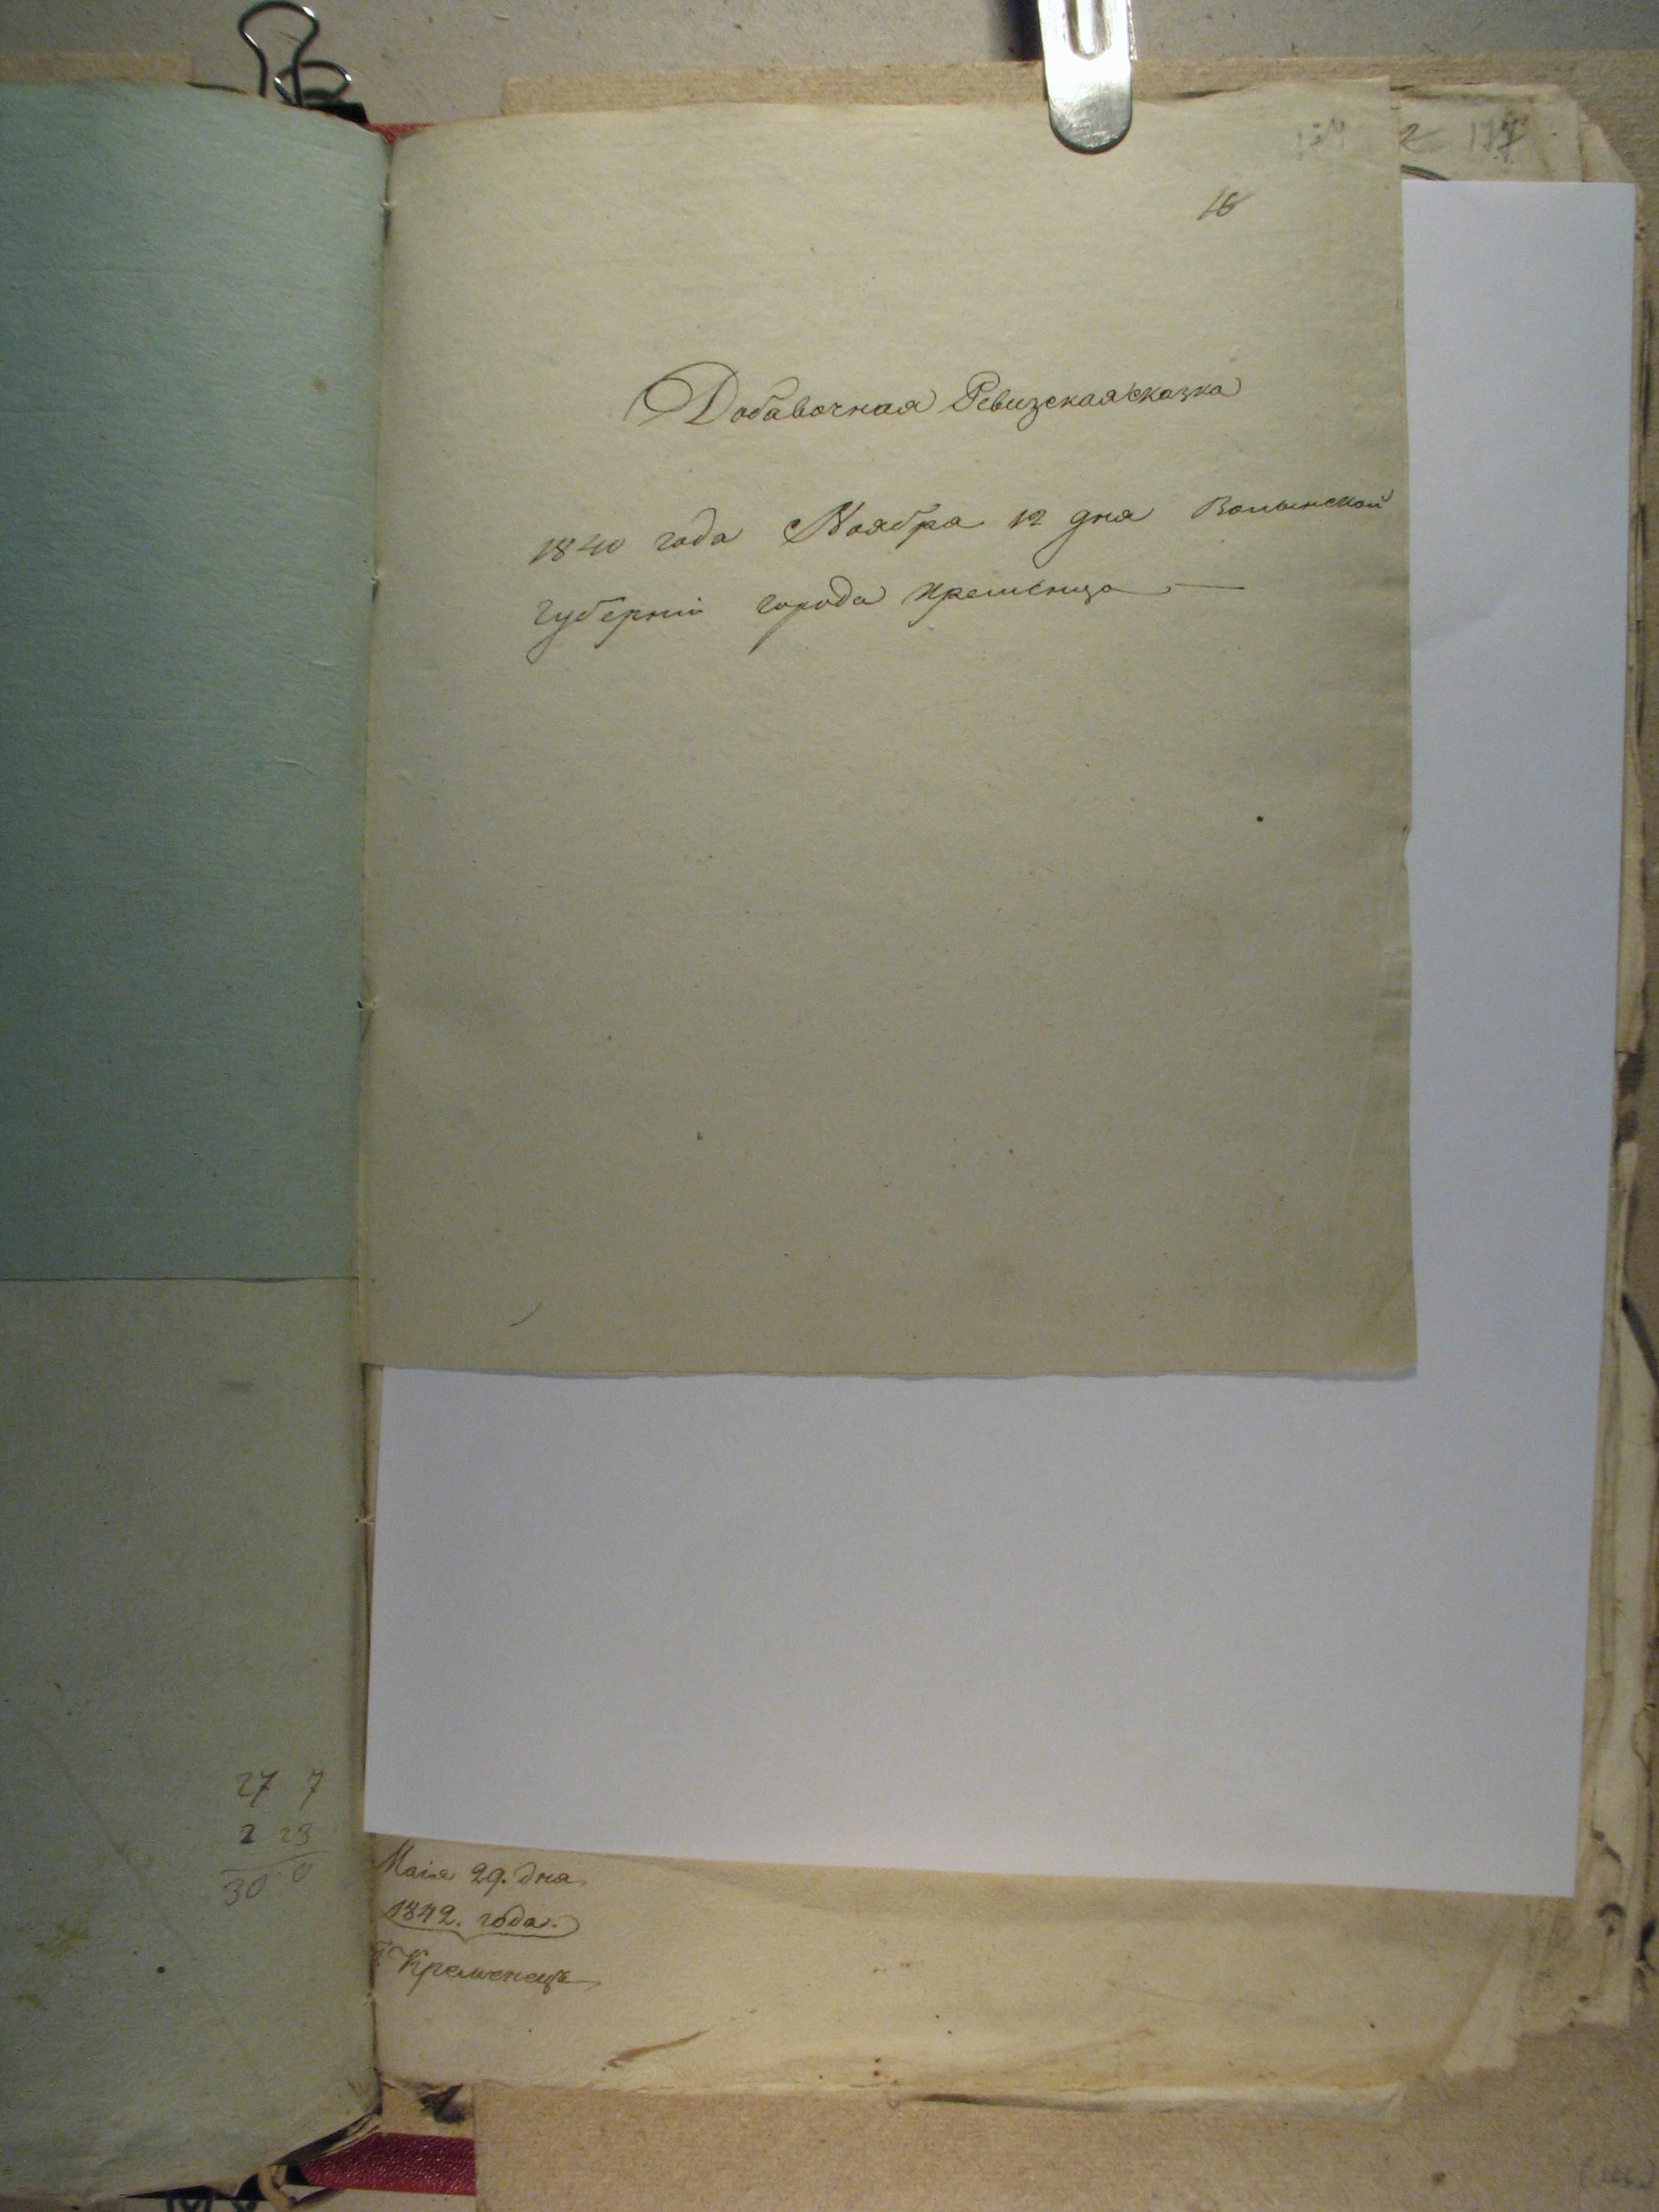 2 177
16
Добавочная Ревизская сказка
1840 года Ноября 12 дня Волынской
Губерніи города Кременца
27 7
2 23
30 0
Маія 29. дня
1842. года.
Кременецъ